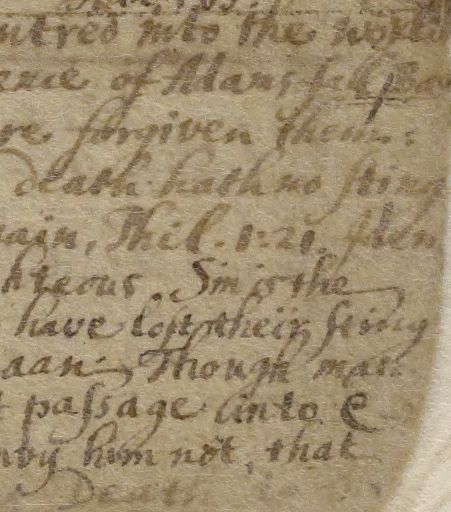 ntred into the world
ence of Mans fall
re forgiven them:
death hath no sting
ain, Phil. 1:21.
hteous. Sin is the
have lost their sting
aan. Though man
t passage into
nvy him not, that
Death